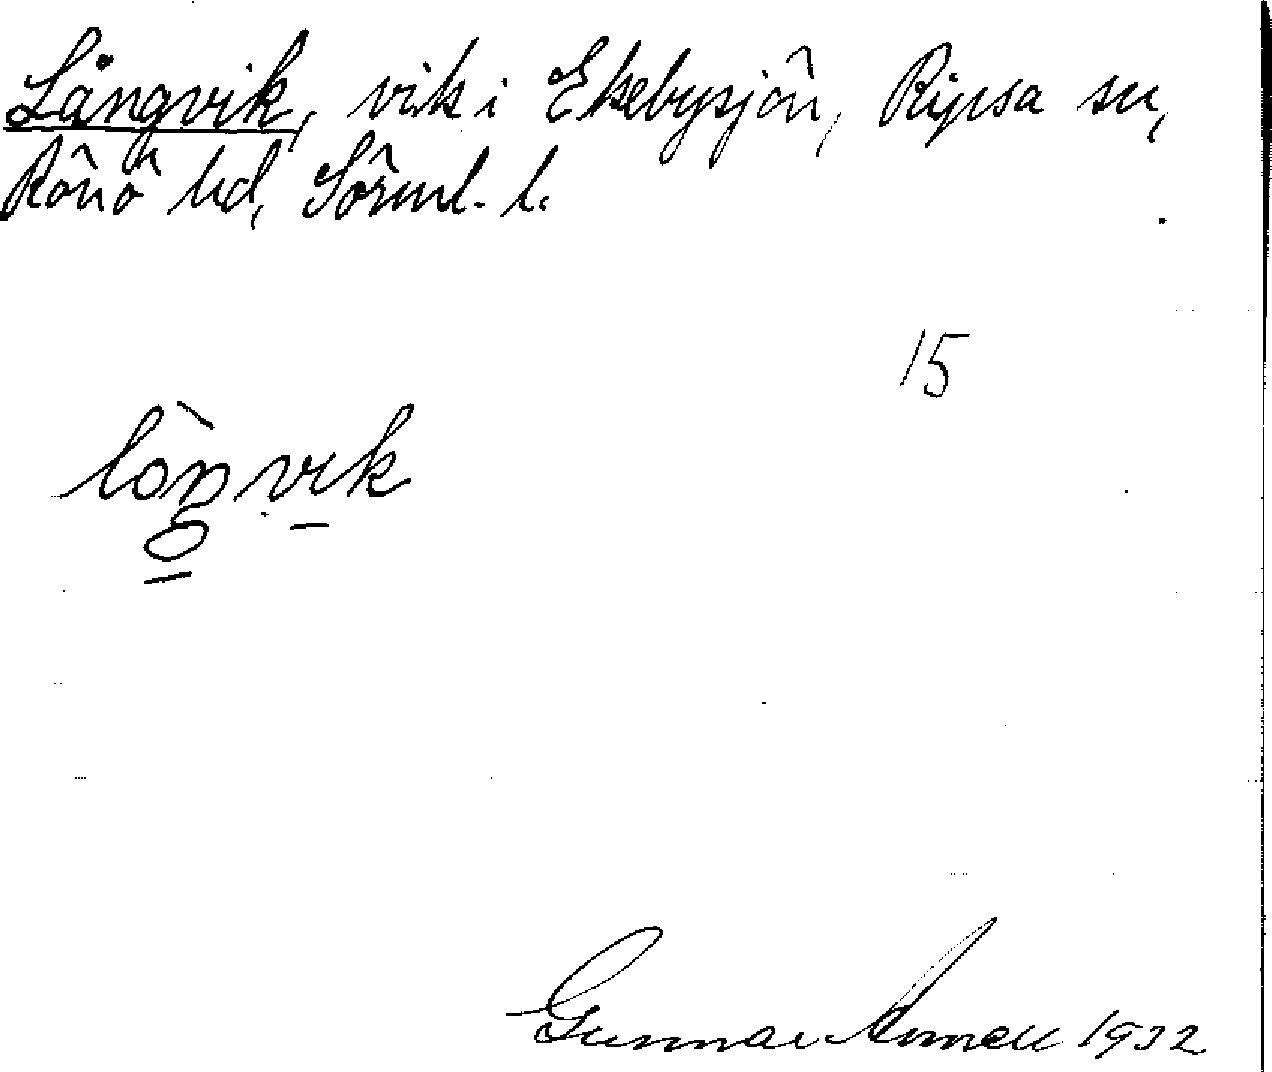 Långvik, vik i Ekebysjön, Ripsa sn,
Rönö hd, Sörml. l.
15
Gunnar 1932